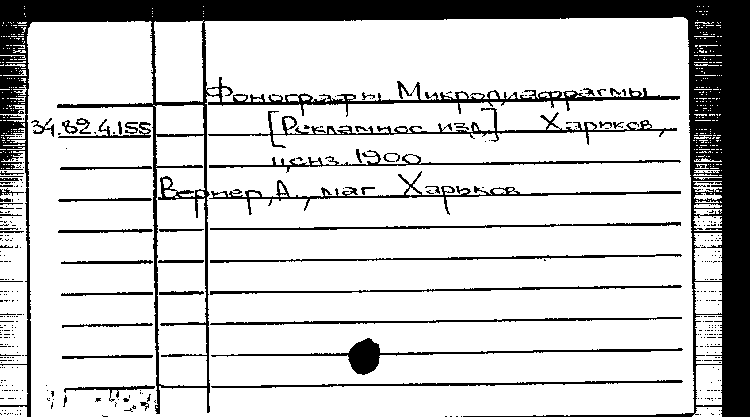 Фонографы Микродиафрагмы
34.82.4.155 [Рекламное изд.] Харьков,
ценз. 1900
Вернер, А., маг Харьков